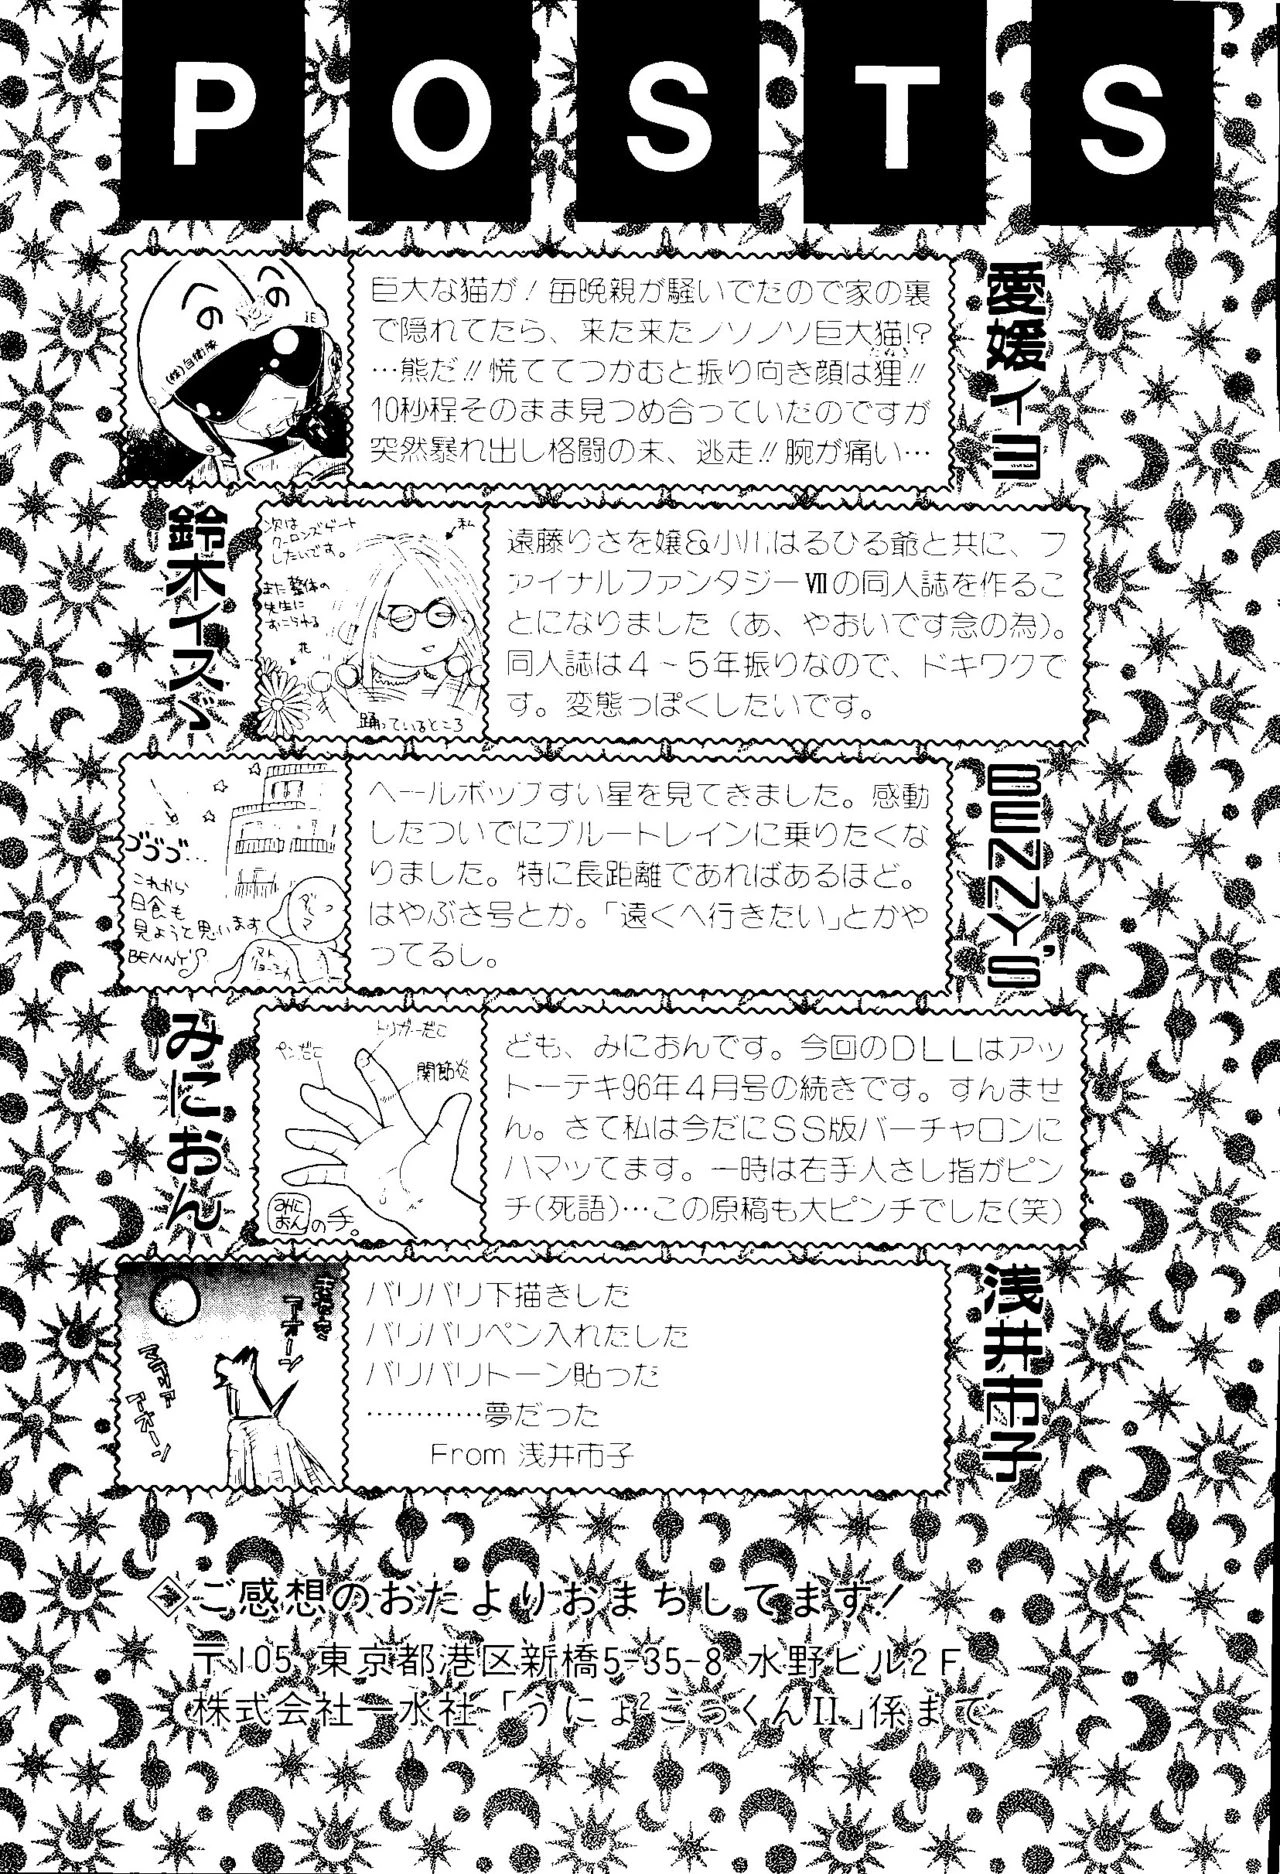 POSTS
愛媛イヨ
くの
くの
IE
(株)自衛隊
巨大な猫が！毎晩親が騒いでたので家の裏
で隠れてたら、来た来たノソノソ巨大猫!?
…熊だ!!慌ててつかむと振り向き顔は狸!!
10秒程そのまま見つめ合っていたのですが
突然暴れ出し格闘の末、逃走!!腕が痛い…
鈴木イスゞ
次は
クーロンズゲート
したいです。
私
また整体の
先生に
おこられる
花
踊っているところ
遠藤りさを嬢＆小川はるひる爺と共に、フ
ァイナルファンタジーⅦの同人誌を作るこ
とになりました（あ、やおいです念の為）。
同人誌は４～５年振りなので、ドキワクで
す。変態っぽくしたいです。
BENNY'S
ゴゴゴ…
これから
日食も
見ようと思います
BENNY'S
ヘールボップすい星を見てきました。感動
したついでにブルートレインに乗りたくな
りました。特に長距離であればあるほど。
はやぶさ号とか。「遠くへ行きたい」とかや
ってるし。
みにおん
トリガーだこ
ペンだこ
関節炎
みに
おんの手。
ども、みにおんです。今回のＤＬＬはアッ
トーテキ96年４月号の続きです。すんませ
ん。さて私は今だにＳＳ版バーチャロンに
ハマッてます。一時は右手人さし指がピン
チ(死語)…この原稿も大ピンチでした(笑)
浅井市子
バリバリ下描きした
バリバリペン入れたした
バリバリトーン貼った
…………夢だった
From 浅井市子
ご感想のおたよりおまちしてます！
〒105 東京都港区新橋5-35-8 水野ビル２Ｆ
株式会社一水社「うにょ²ごっくんⅡ」係まで